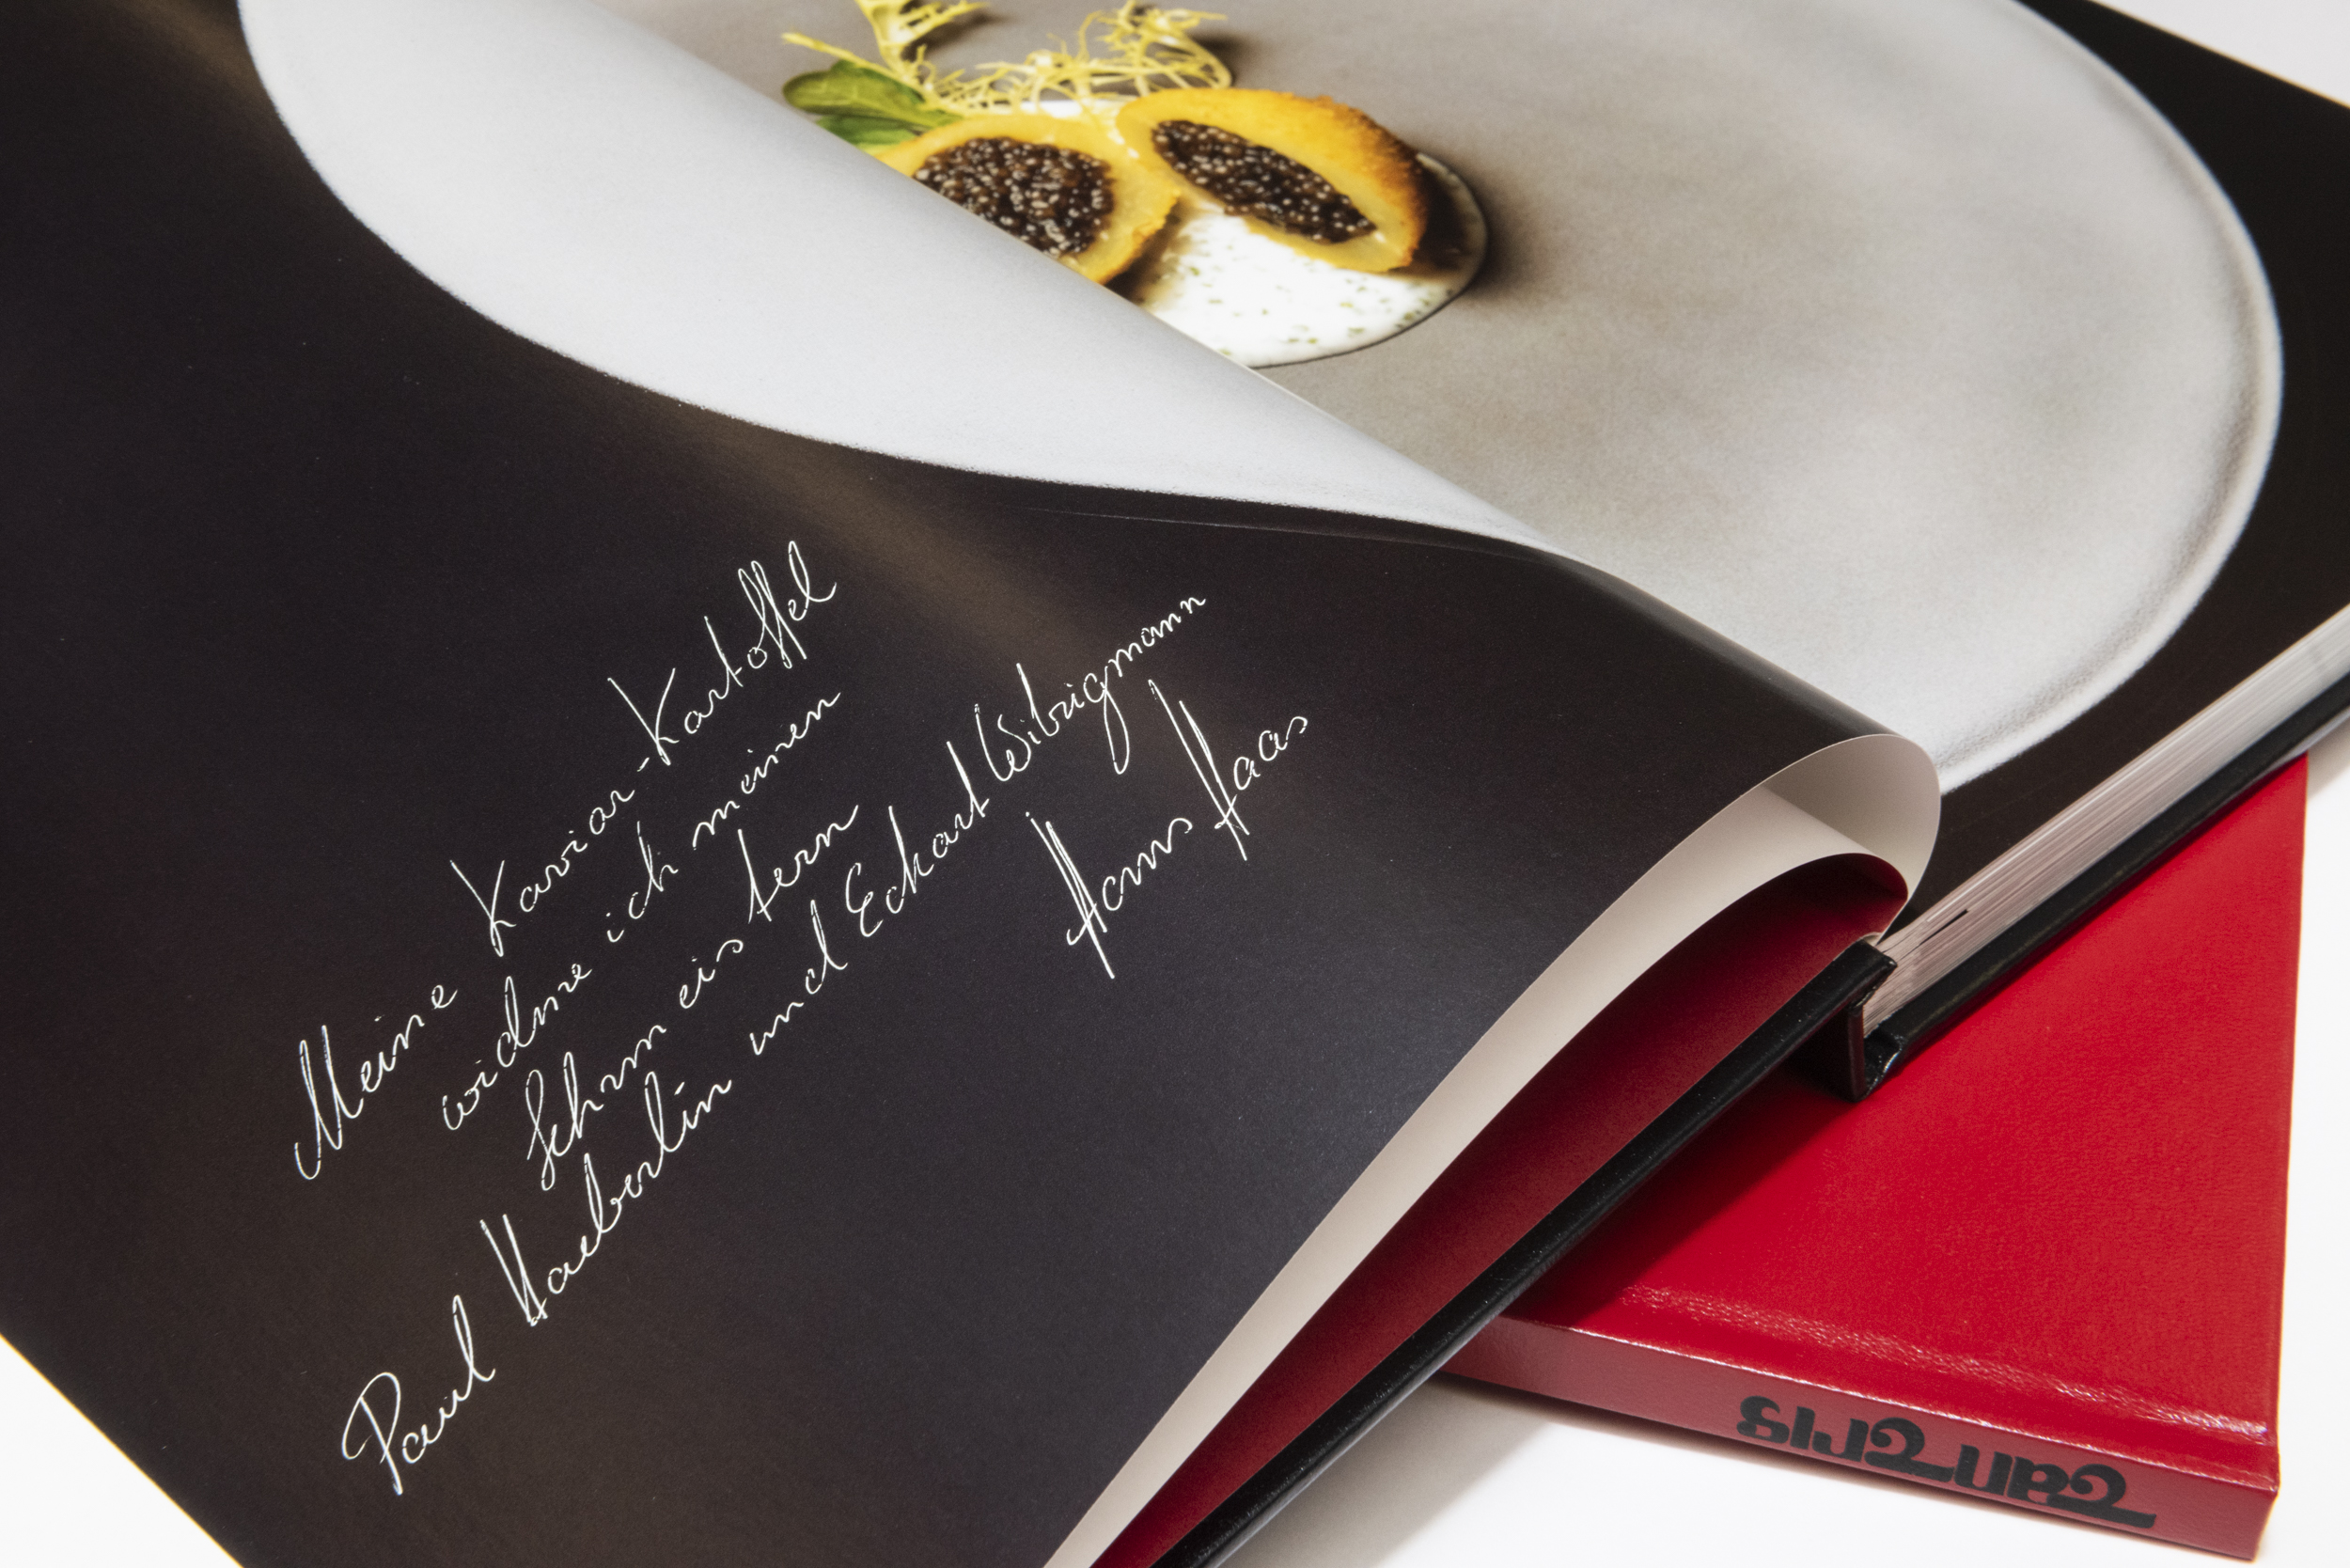 Meine Kaviar-Kartoffel
widme ich meinen
Lehrmeistern
Paul Haeberlin und Eckart Witzigmann
Hans Haas
Tantris